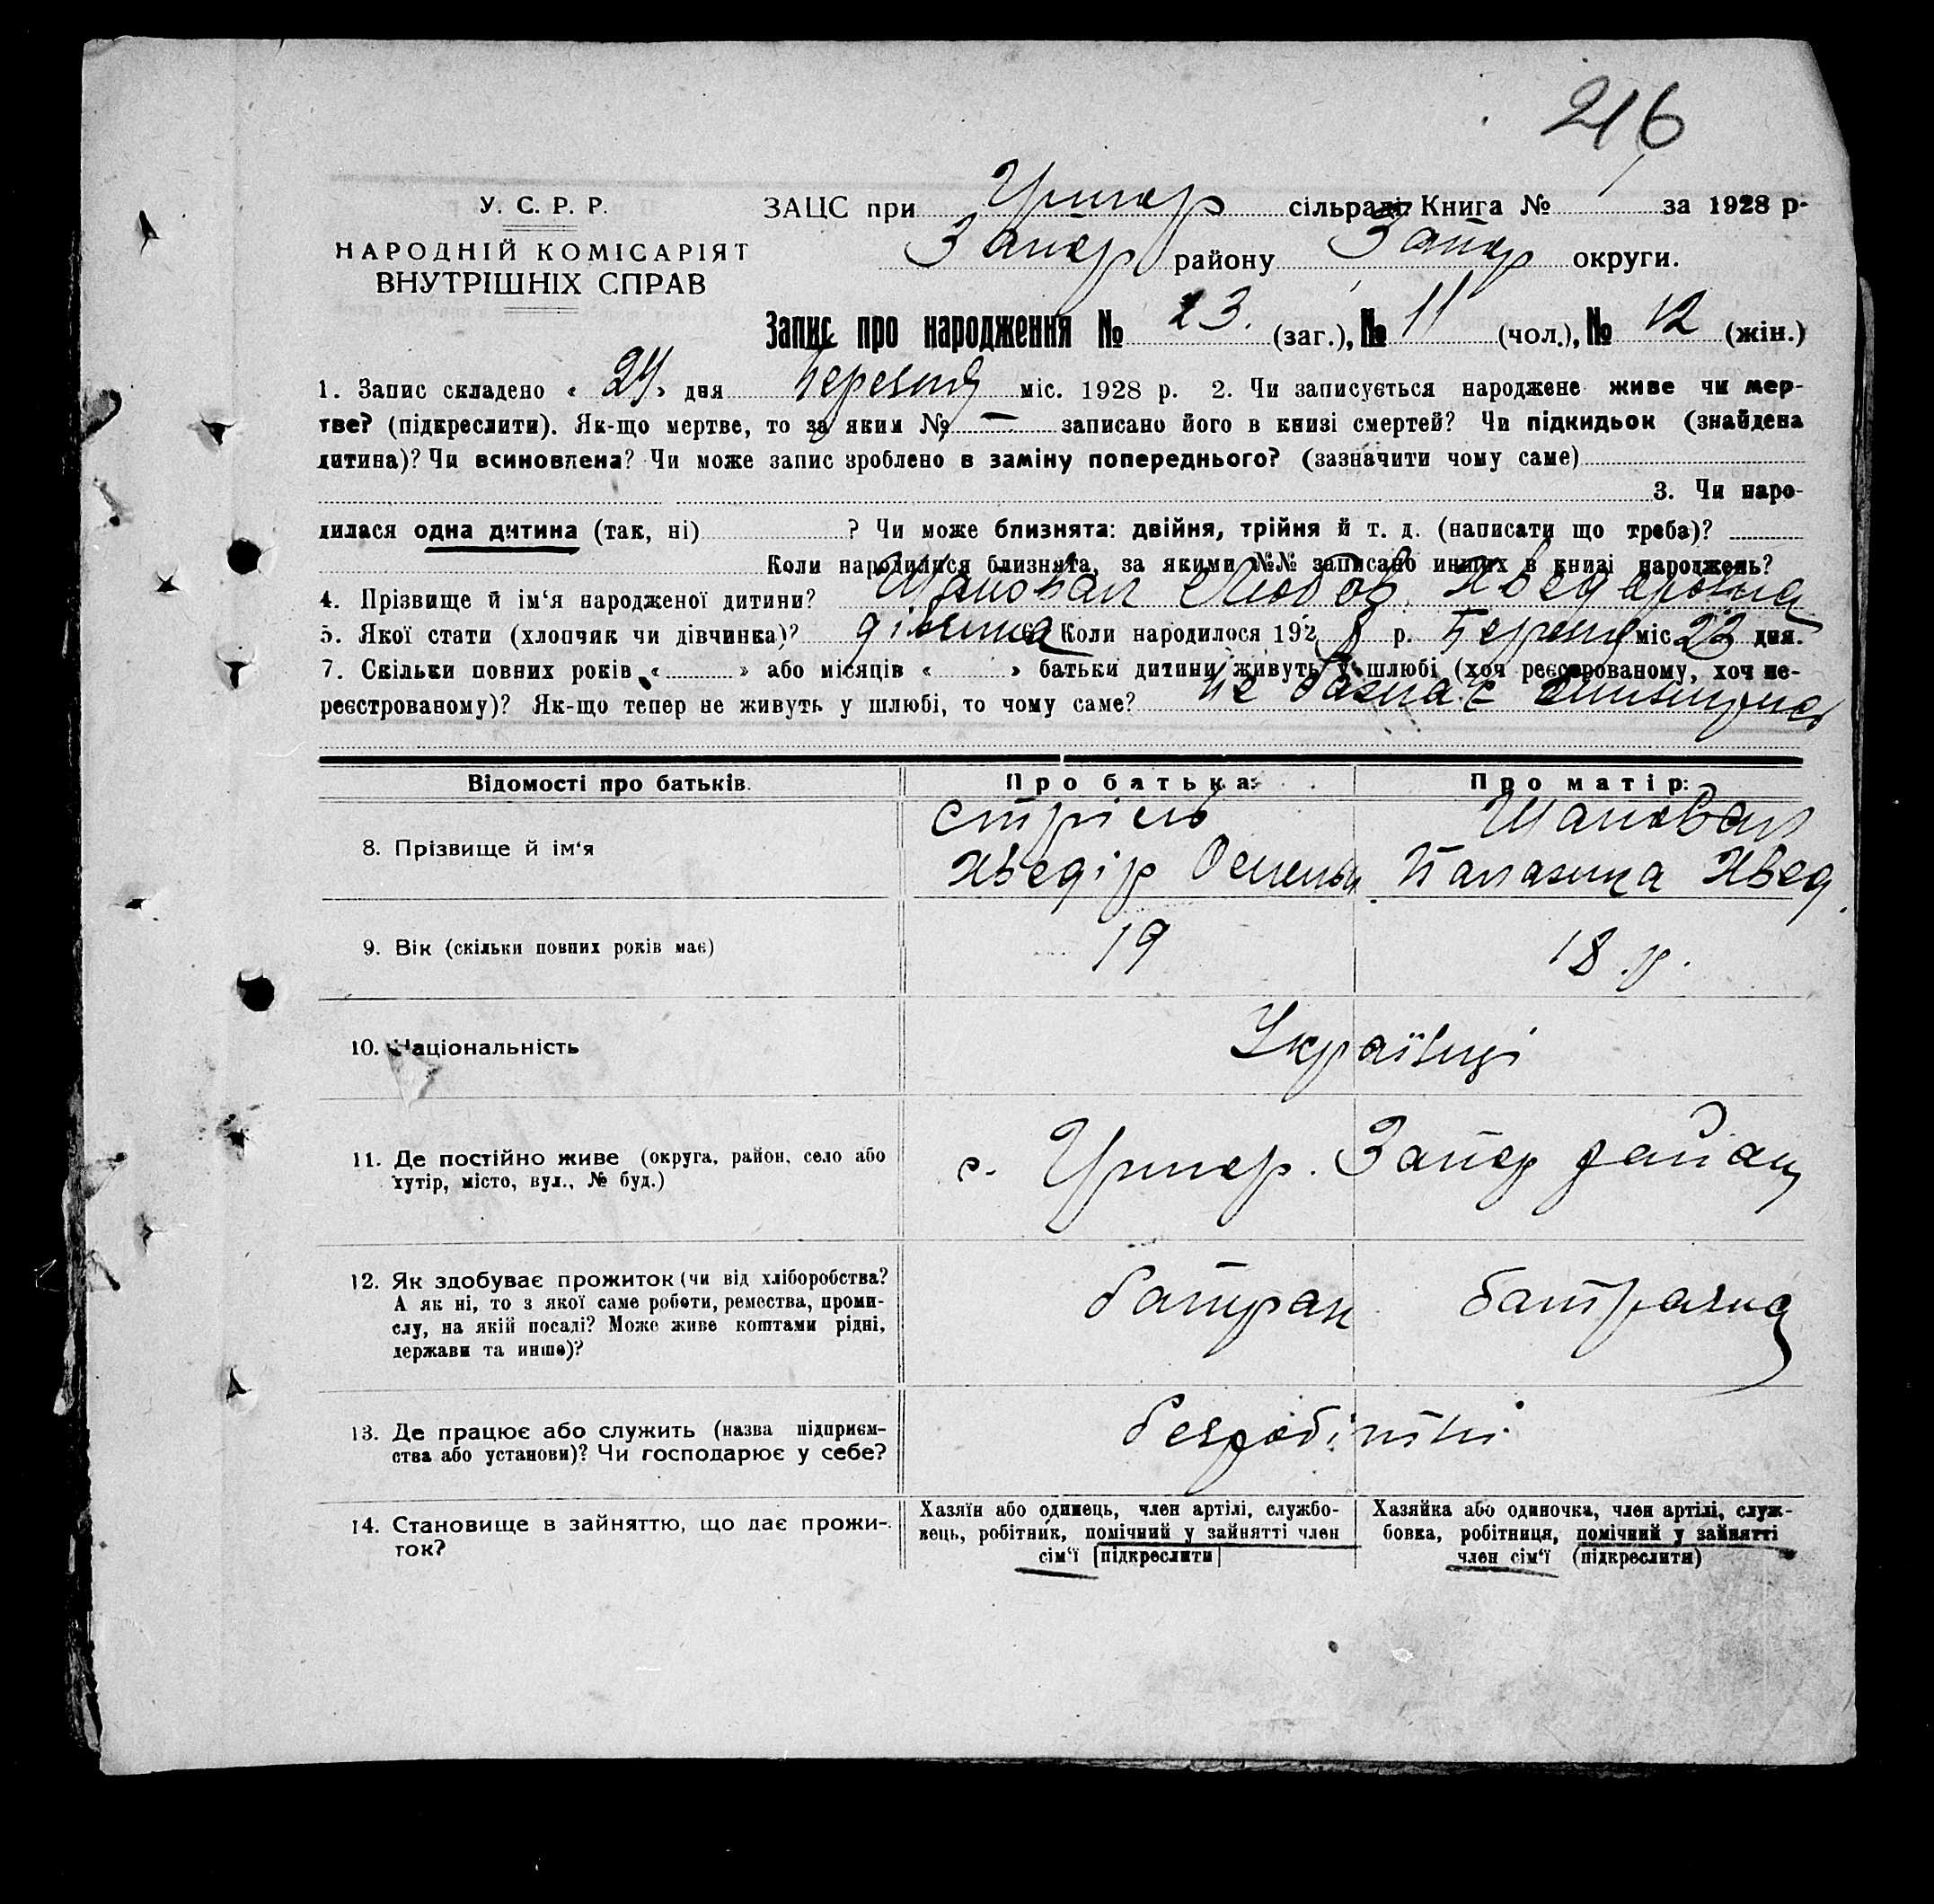 216
У. С. Р. Р.
НАРОДНІЙ КОМІСАРІЯТ
ВНУТРІШНІХ СПРАВ
ЗАЦС при Григор сільраді. Книга № за 1928 р.
Запор району Запор округи.
Запис про народження № 23. (заг.), № 11 (чол.), № 12 (жін.)
1. Запис складено « 24 » дня березня міс. 1928 р. 2. Чи записується народжене живе чи мер-
тве? (підкреслити). Як-що мертве, то за яким № — записано його в книзі смертей? Чи підкидьок (знайдена
дитина)? Чи всиновлена? Чи може запис зроблено в заміну попереднього? (зазначити чому саме)
3. Чи наро-
дилася одна дитина (так, ні) ? Чи може близнята: двійня, трійня й т. д. (написати що треба)?
Коли народилися близнята, за якими №№ записано инших в книзі народжень?
4. Прізвище й ім‘я народженої дитини? Шаповал Любов Хведоровна
5. Якої стати (хлопчик чи дівчинка)? дівчина 6. Коли народилося 1928 р. Березня міс 23 дня.
7. Скільки повних років « » або місяців « » батьки дитини живуть у шлюбі (хоч реєстрованому, хоч не-
реєстрованому)? Як-що тепер не живуть у шлюбі, то чому саме? не бажає
Відомості про батьків. Про батька: Про матір:
8. Прізвище й ім‘я
Стріль
Хведір
Шаповал
Палажка Хвед.
9. Вік (скільки повних років має) 19 18 р.
10. Національність Українці
11. Де постійно живе (округа, район, село або
хутір, місто, вул., № буд.)
с. Григор. Запор району
12. Як здобуває прожиток (чи від хліборобства?
А як ні, то з якої саме роботи, ремества, проми-
слу, на якій посаді? Може живе коштами рідні,
держави та инше)?
батрак батрачка
13. Де працює або служить (назва підприєм-
ства або установи)? Чи господарює у себе?
безробітні
14. Становище в зайняттю, що дає прожи-
ток?
Хазяїн або одинець, член артілі, службо-
вець, робітник, помічний у зайнятті член
сім‘ї [підкреслити]
Хазяйка або одиночка, член артілі, служ-
бовка, робітниця, помічний у зайнятті
член сім‘ї (підкреслити)